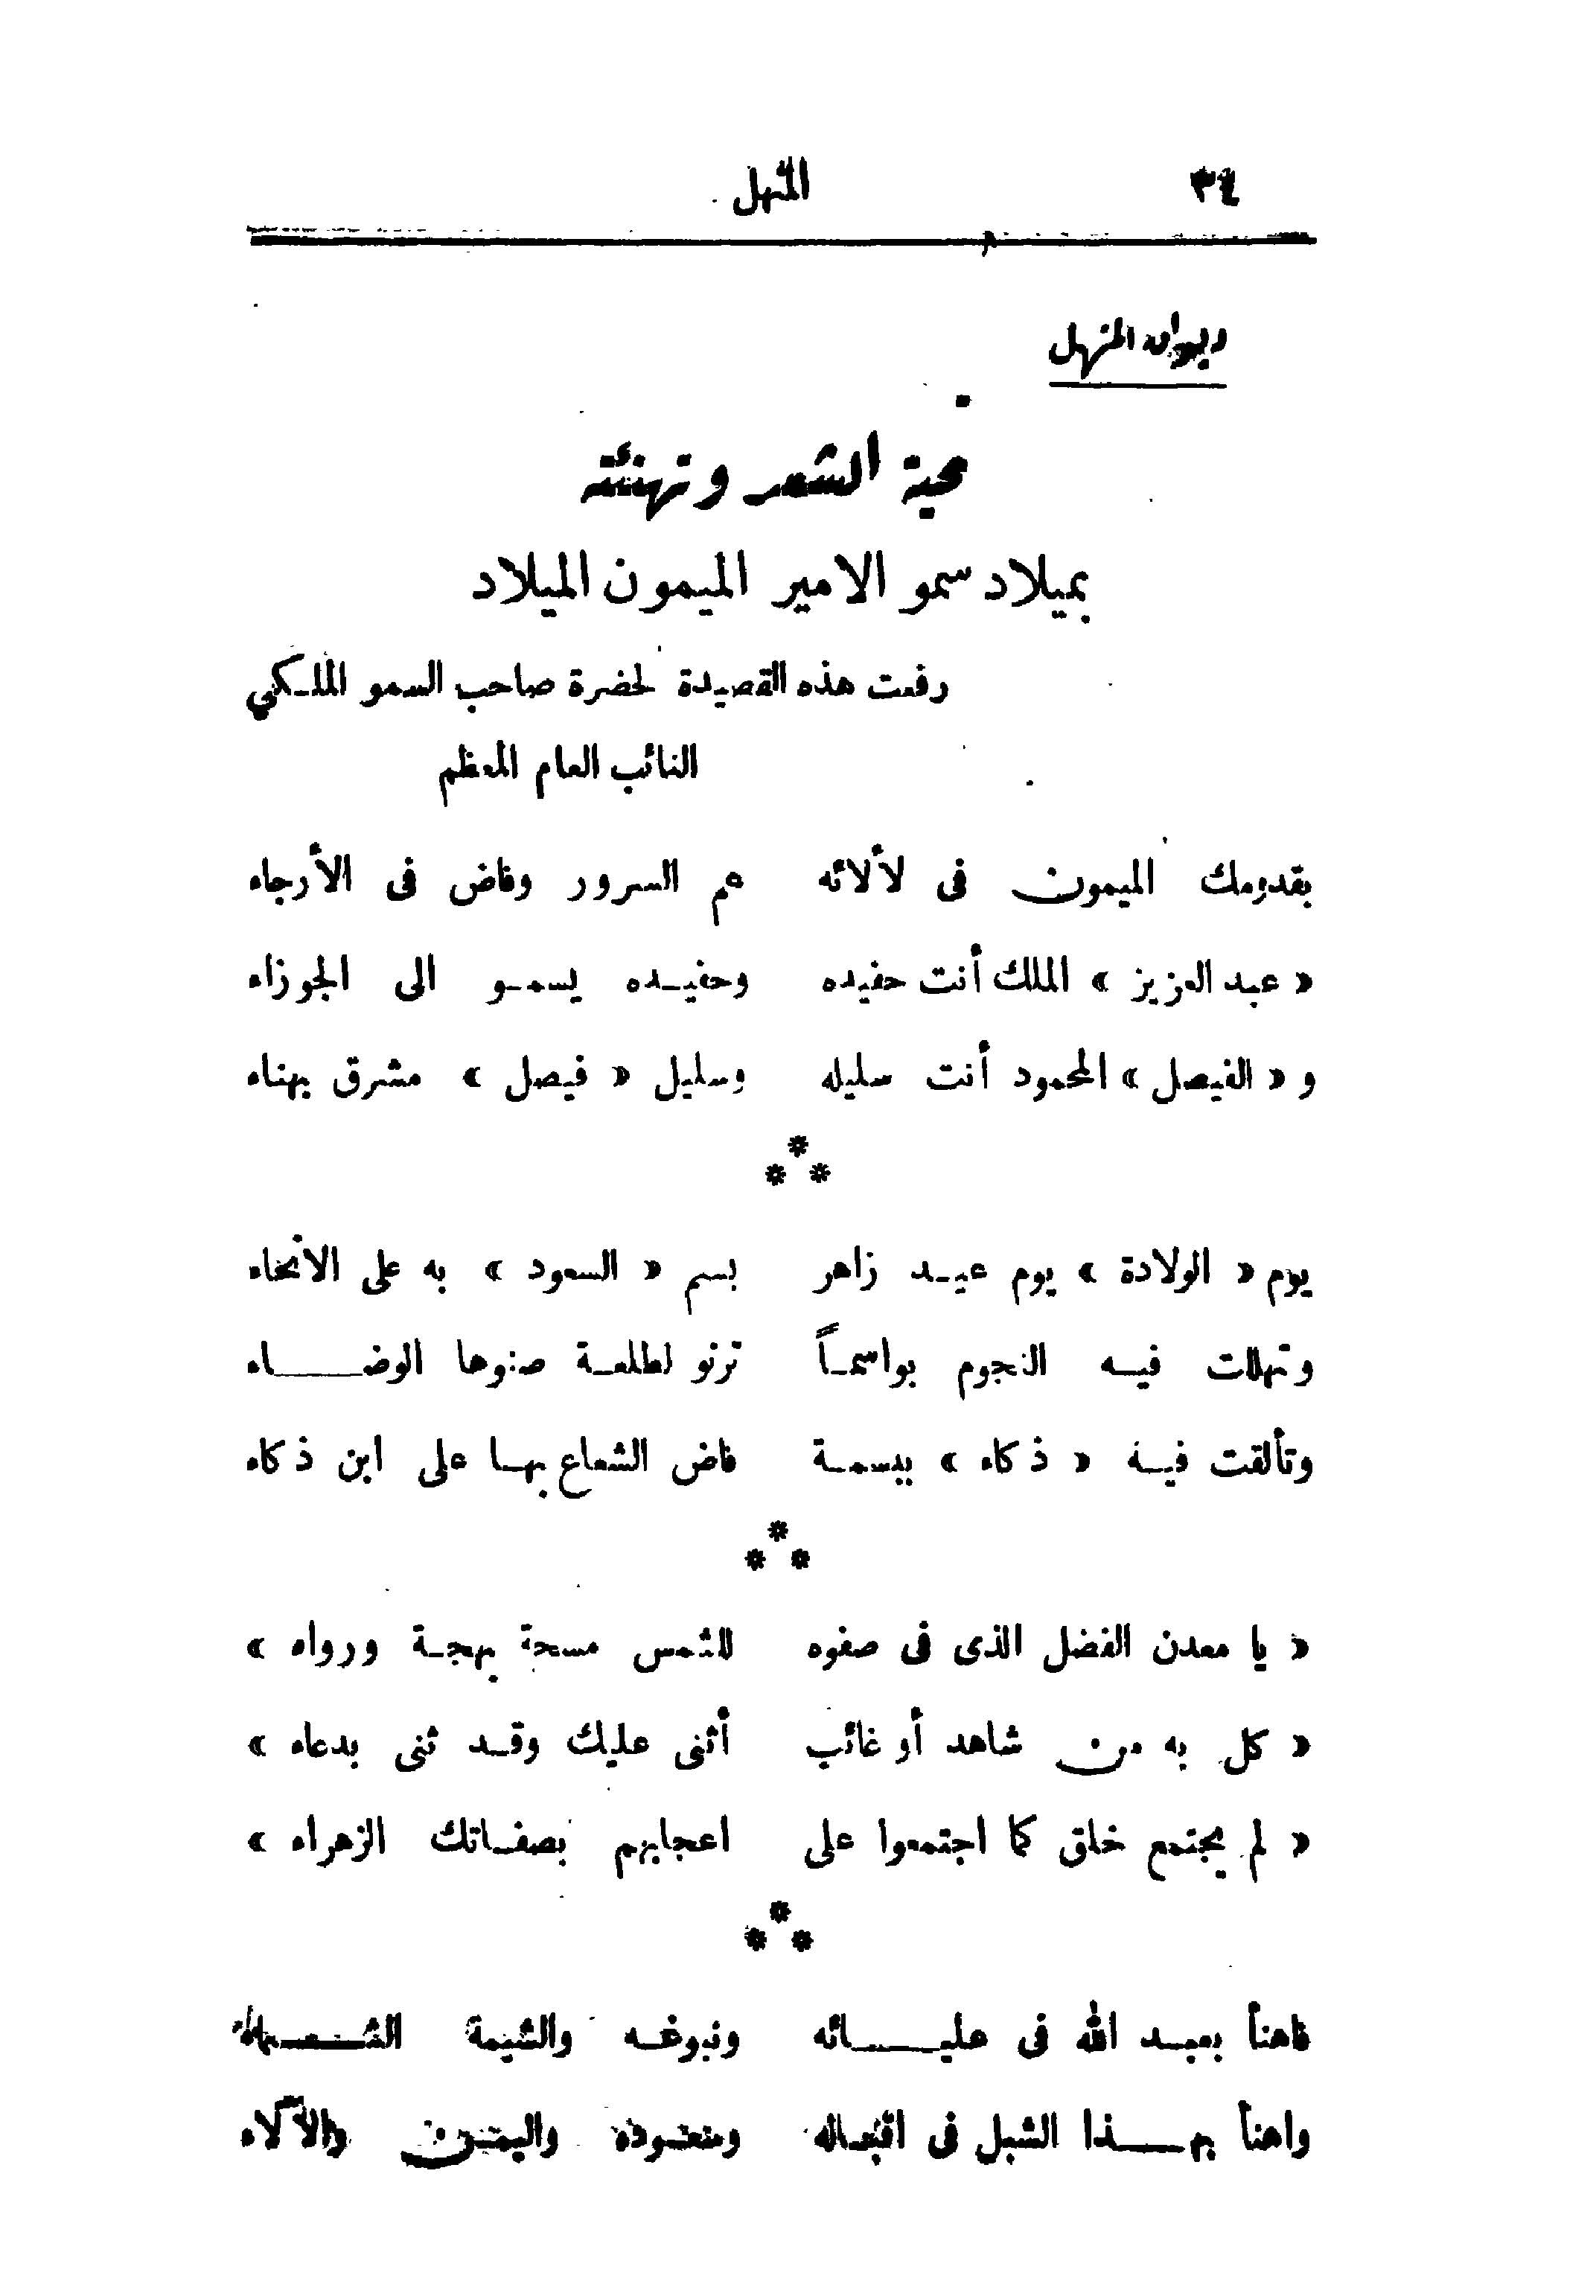 ٣٤
المنهل
ديوان المنهل
تحية الشعر وتهنئته
بميلاد سمو الامير الميمون الميلاد
رفعت هذه القصيدة لحضرة صاحب السمو الملكي
النائب العام المعظم
بقدومك الميمون فى لألائه عم السرور وفاض فى الأرجاء
« عبد العزيز » الملك أنت حفيده وحفيده يسمو الى الجوزاء
و « الفيصل » المحمود أنت سليله وسليل « فيصل » مشرق بهناء
***
يوم « الولادة » يوم عيد زاهر بسم « السعود » به على الانحاء
وتهللت فيه النجوم بواسماً ترنو لطلعة صنوها الوضاء
وتألقت فيه « ذكاء » ببسمة فاض الشعاع بها على ابن ذكاء
***
« يا معدن الفضل الذى فى صفوه للشمس مسحة بهجة ورواء »
« كل به من شاهد أو غائب أثنى عليك وقد ثنى بدعاء »
« لم يجتمع خلق كما اجتمعوا على اعجابهم بصفاتك الزهراء »
***
فاهنأ بعبد الله فى عليائه ونبوغه والشيمة الشماء
واهنأ بهذا الشبل فى اقباله وسعوده واليمن والآلاء